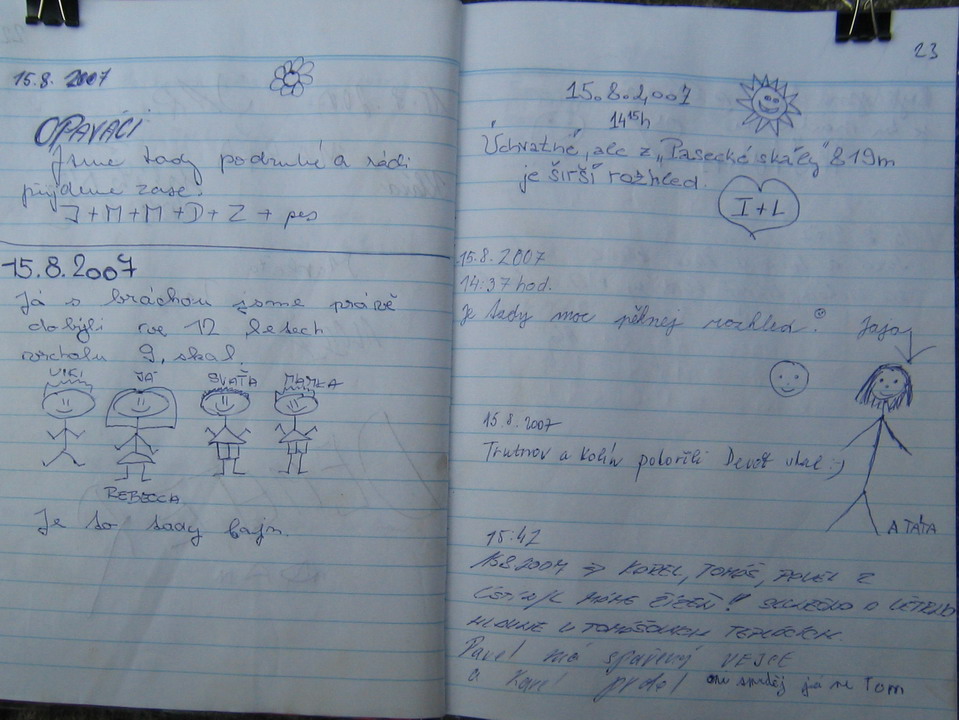 15.8. 2007
OPAVÁCI
Jsme tady podruhé a rádi
přijdeme zase.
J+M+M+D+Z + pes
15.8.2007
Já s bráchou jsme právě
dobyli ve 12 letech
vrchol 9. skal.
VIKI JÁ SVAŤA MAŤKA
REBECCA
Je to tady fajn.
23
15.8.2007
14 15h
Úchvatné, ale z „Pasecké skály" 819m
je širší rozhled.
I + L
15.8.2007
14:37 hod.
Je tady moc pěknej rozhled! Jaja
15.8.2007
Trutnov a Kolín pokořili Devět skal :-)
A TÁTA
15:42
15.8.2007 → KAREL, TOMÁŠ, PAVEL Z
MÁME ŽÍZEŇ!
Pavel má VEJCE
a Karel prdel ani smrděj já ne Tom